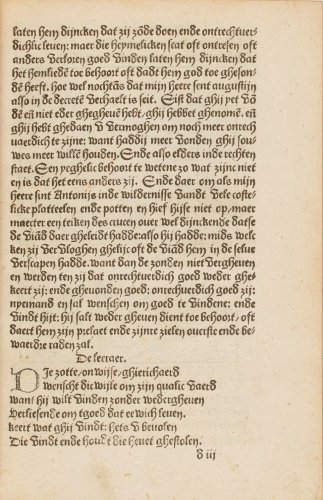 laten hem dijncken dat zij zōde doen ende ontrechtuer-
dichlic leuen: maer die heymelicken scat oft ontresen oft
anders verloren goed vinden laten hem dijncken dat
het hemliedē toe behoort oft dadt hem god toe gheson-
dē heeft. Hoe wel nochtās dat mijn heere sent augustijn
also in de decretē verhaelt is seit. Eist dat ghij yet vō
dē eñ niet eder ghegheuē hebt, ghij hebbet ghenomē. eñ
ghij hebt ghedaen v vermoghen om noch meer onrech
uaerdich te zijne: want haddij meer vonden ghij sou-
wes meer willē houden. Ende also elders inde rechten
staet. Een yeghelic behoort te wetene zo wat zijnc niet
en is dat het eens anders zij. Ende daer om als mijn
heere sint Antonijs inde wildernisse vandt vele coste-
licke platteelen ende potten en hief hisse niet op, maer
maecter een teeken des cruces ouer wel dijnckende datse
de viād daer gheleidt hadde also hij hadde: mids wele-
ken zij vervloghen ghelijc oft de viād hem in de selue
verscapen hadde. want dan de zonden niet vergheuen
en werden ten zij dat onrechtuerdich goed weder ghe-
keert zij: ende gheuonden goed: onrechuerdich goed zij:
nyemand en sal wenschen om goed te vindene: ende
vindt hijt: hij salt weder gheuen dient toe behoort, oft
daert hem zijn prelaet ende zijnre zielen ouerste ende be-
waerdre raden zal.
De leeraer.
DIe zotte, onwijse, ghierichaerd
wenscht dicwijle om zijn qualic vaerd
want hij wilt vinden zonder wedergheuen
verliesende om tgoed dat eewich leuen.
keert wat ghij vindt: hets v beuolen
Die vindt ende houdt die heuet ghestolen.
d iij